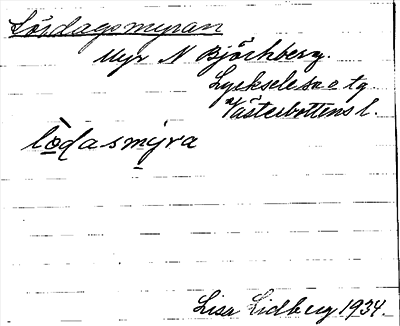 Lördagsmyran
Myr N Björkberg.
Lycksele sn o tg.
Västerbottens l.
lo̱ḏasmy̱ra
Lisa Lidberg 1934.